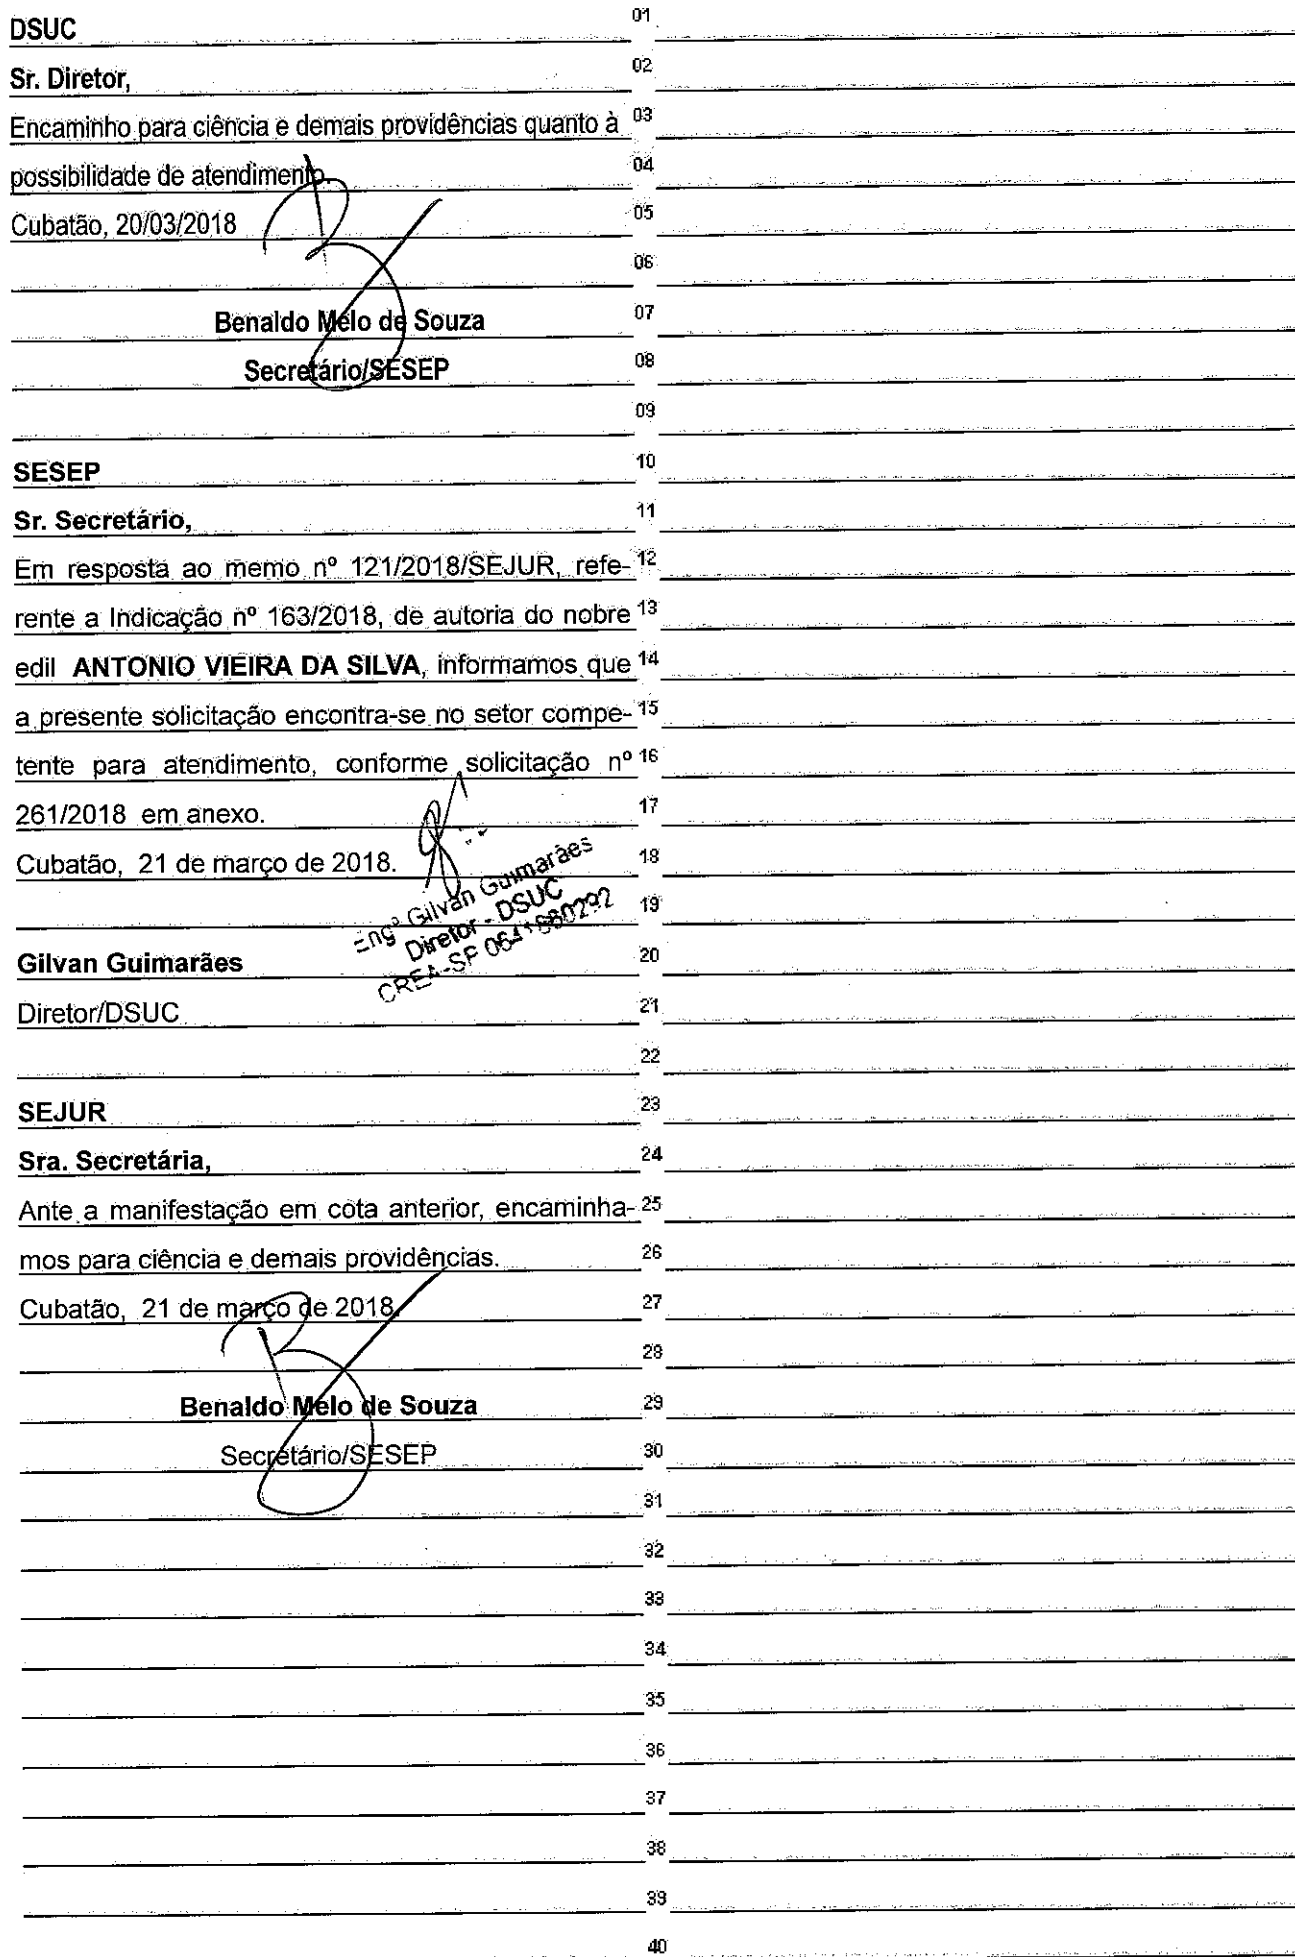 DSUC 01
Sr. Diretor, 02
Encaminho para ciência e demais providências quanto à 03
possibilidade de atendimento 04
Cubatão, 20/03/2018 05
06
Benaldo Melo de Souza 07
Secretário/SESEP 08
09
SESEP 10
Sr. Secretário, 11
Em resposta ao memo nº 121/2018/SEJUR, refe- 12
rente a Indicação nº 163/2018, de autoria do nobre 13
edil ANTONIO VIEIRA DA SILVA, informamos que 14
a presente solicitação encontra-se no setor compe- 15
tente para atendimento, conforme solicitação nº 16
261/2018 em anexo. 17
Cubatão, 21 de março de 2018. 18
Engº Gilvan Guimarães
Diretor - DSUC 19
CREA-SP
Gilvan Guimarães 20
Diretor/DSUC 21
22
SEJUR 23
Sra. Secretária, 24
Ante a manifestação em cota anterior, encaminha- 25
mos para ciência e demais providências. 26
Cubatão, 21 de março de 2018. 27
28
Benaldo Melo de Souza 29
Secretário/SESEP 30
31
32
33
34
35
36
37
38
39
40